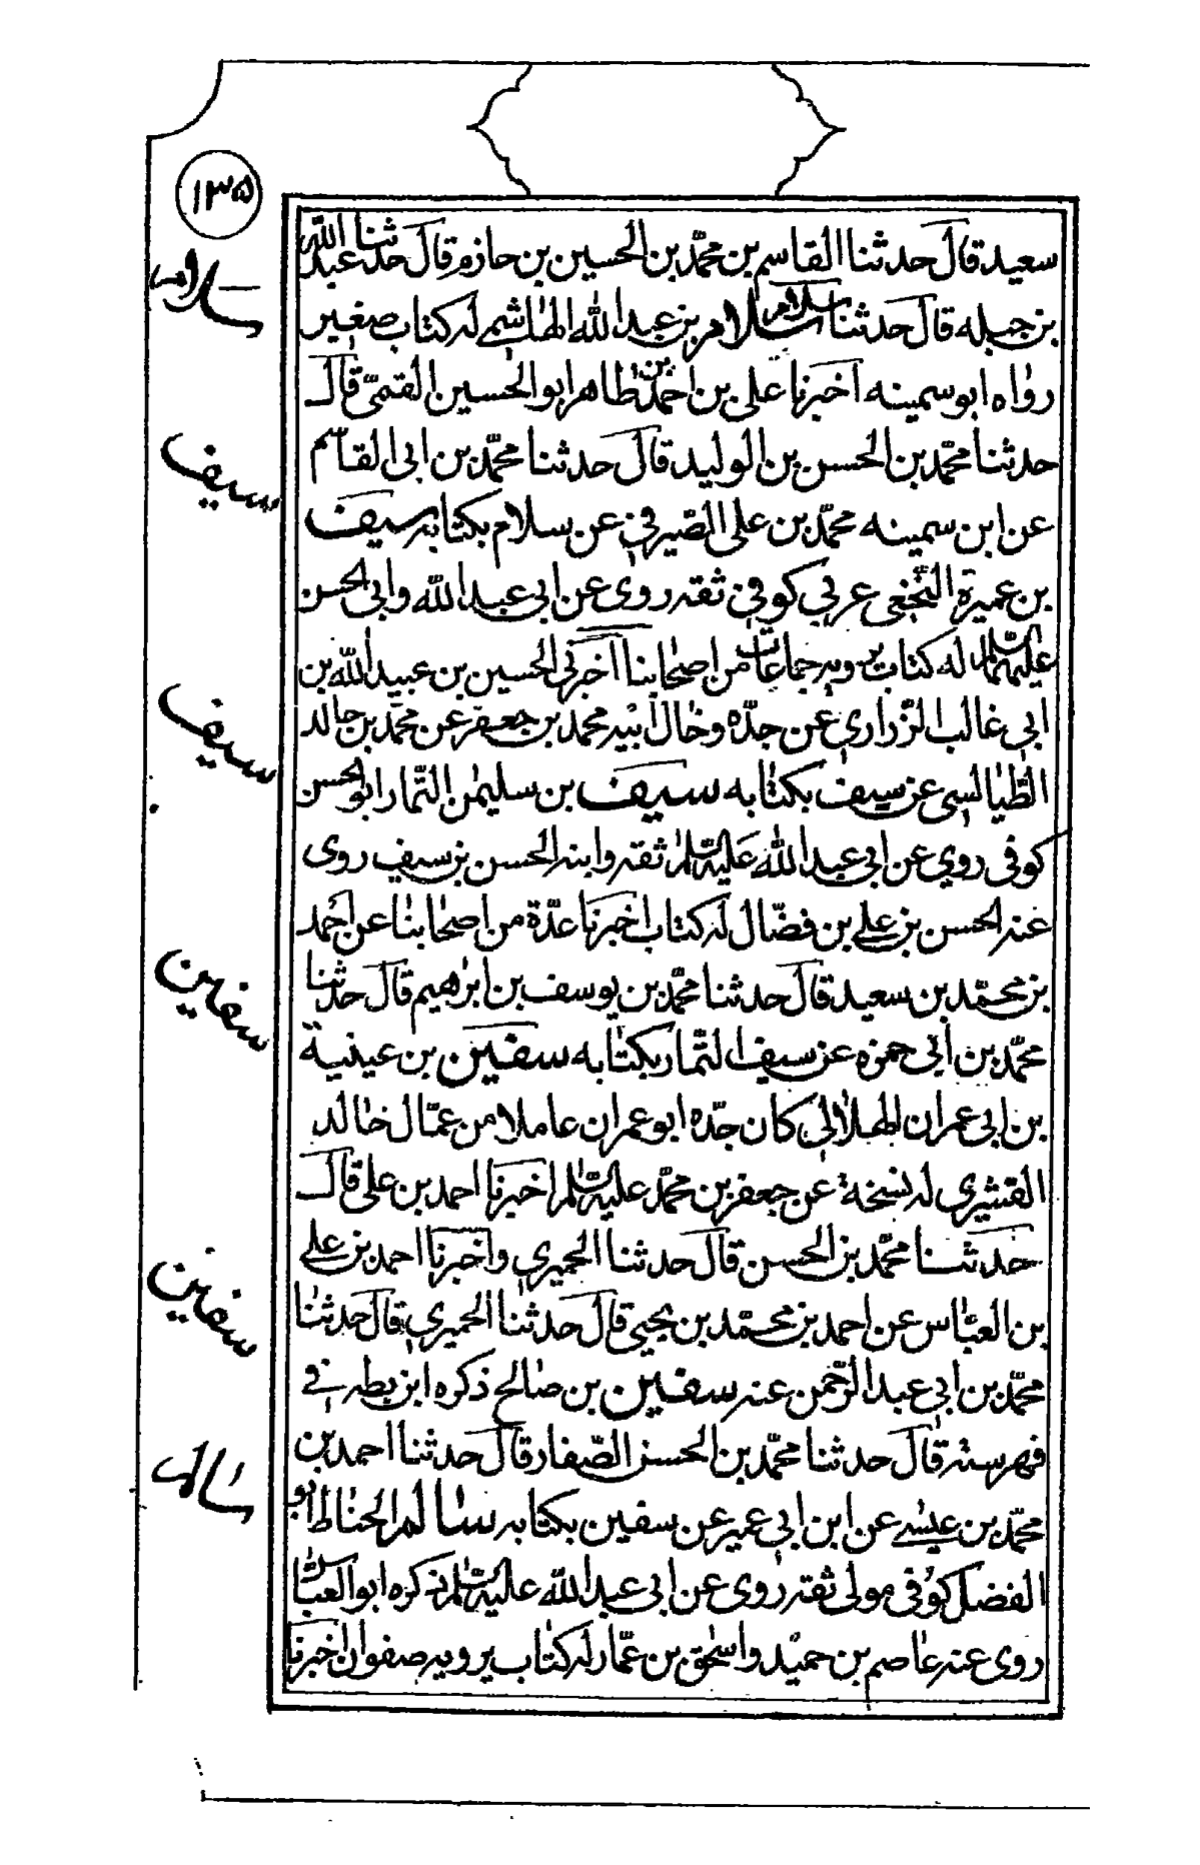 ١٣٥
سعيد قال حدثنا القاسم بن محمّد بن الحسين بن حازم قال حدثنا عبد الله
سلام
بن جبله قال حدثنا سلام بن عبد الله الهاشمے له كتاب صغير
رواه ابو سمينه اخبرنا على بن احمد بن طاهر ابو الحسين القمىّ قال
حدثنا محمّد بن الحسن بن الوليد قال حدثنا محمّد بن ابى القاسم
سيف
عن ابن سمينه محمّد بن على الصّيرفى عن سلام بكتابه سيف
بن عميرة النخعى عربي كوفي ثقه روى عن ابي عبد الله وابى الحسن
عليهما السّلام له كتاب يرويه جماعات من اصحابنا اخبرنى الحسين بن عبيد الله بن
سيف
ابي غالب الزراري عن جدّه وخال ابيه محمد بن جعفر عن محمّد بن خالد
الطّيالسى عن سيف بكتابه سيف بن سليمٰن التّمار ابو الحسن
كوفى روي عن ابي عبد الله عليه السّلم ثقه وابنه الحسن بن سيف روى
عنه الحسن بن علے بن فضّال له كتاب اخبرنا عدّة من اصحابنا عن احمد
سفين
بن محمّد بن سعيد قال حدثنا محمّد بن يوسف بن ابرٰهيم قال حدثنا
محمّد بن ابي حمزه عن سيف التّمار بكتابه سفين بن عيينة
بن ابى عمران الهلالي كان جدّه ابو عمران عاملا من عمّال خالد
القشيرى له نسخة عن جعفر بن محمّد عليه السّلم اخبرنا احمد بن على قال
حدثنا محمّد بن الحسن قال حدثنا الحميري واخبرنا احمد بن علے
سفين
بن العبّاس عن احمد بن محمّد بن يحيى قال حدثنا الحميري قال حدثنا
محمّد بن ابي عبد الرّحمن عنه سفين بن صالح ذكره ابن بطه فے
فهرسته قال حدثنا محمّد بن الحسن الصّفار قال حدثنا احمد بن
سالم
محمّد بن عيسے عن ابن ابي عمير عن سفين بكتابه سالم الحناط ابو
الفضل كوفى مولى ثقه روى عن ابى عبد الله عليه السّلم ذكره ابو العبّاس
روى عنه عاصم بن حميد واسحٰق بن عمّار له كتاب يرويه صفوان اخبرنا